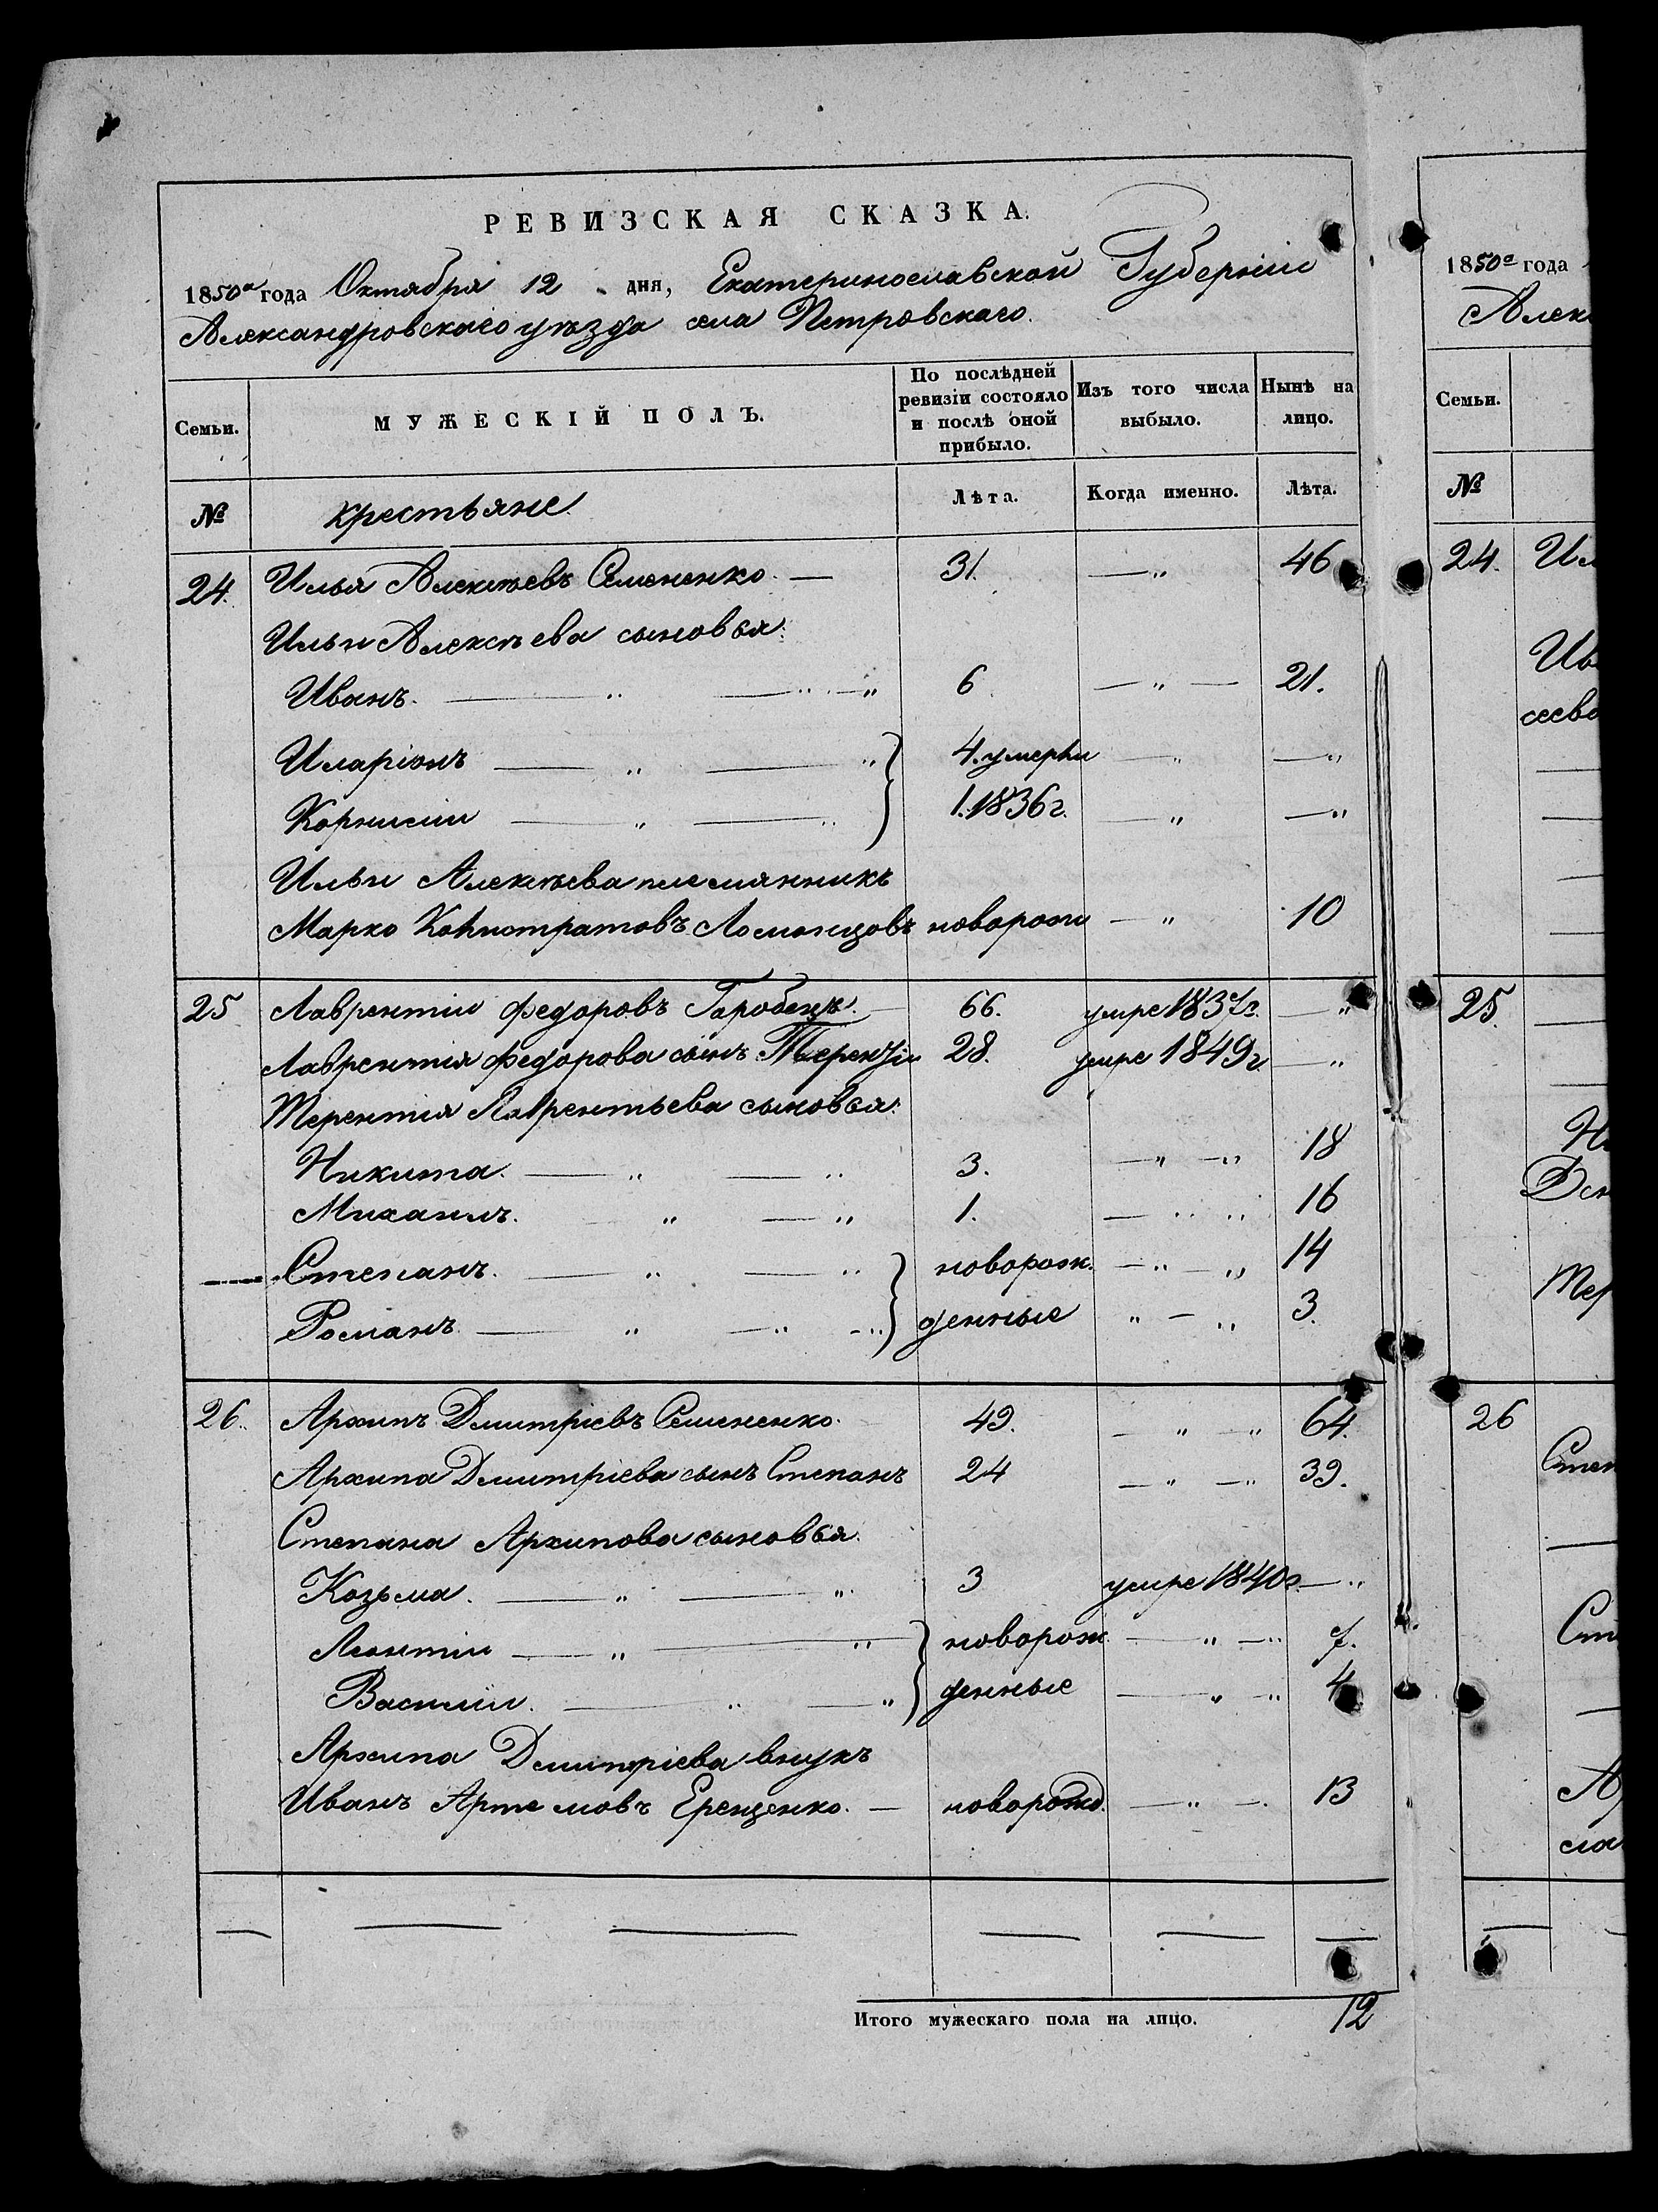 РЕВИЗСКАЯ СКАЗКА.
1850а года Октября 12 дня, Екатеринославской Губерніи
Александровскаго уѣзда села Петровскаго.
Семьи. МУЖЕСКІЙ ПОЛЪ. По послѣдней ревизіи состояло и послѣ оной прибыло. Изъ того числа выбыло. Нынѣ на лицо.
№ крестьяне Лѣта. Когда именно. Лѣта.
24. Илья Алексѣевъ Семененко. — 31. — „ 46
Ильи Алексѣева сыновья:
Иванъ. — „ — „ — „ 6 — „ — 21.
Иларіонъ — „ — „ 4. умерли — „ — „
Корнилій — „ — „ 1. 1836 г. — „ — „
Ильи Алексѣева племянникъ
Марко Каѳистратовъ новорож — „ 10
25 Лаврентій Федоровъ Горобець. 66. умре 1837 г. — „
Лаврентія Федорова сынъ Терентій 28. умре 1849 г. — „
Терентія Лаврентьева сыновья:
Никита. — „ — „ 3. — „ — „ 18
Михаилъ. — „ — „ 1. — „ „ 16
Степанъ. — „ — „ новорож. — „ — „ 14
Романъ — „ — „ — „ денные „ — „ 3.
26. Архипъ Дмитріевъ Семененко. 49. — „ — „ 64.
Архипа Дмитріева сынъ Степанъ 24 — „ — „ 39.
Степана Архипова сыновья.
Козьма. — „ — „ 3 умре 1840 г. — „
Леонтій — „ — „ новорож — „ — „ 7.
Василій. — „ — „ денные — „ — „ 4
Архипа Дмитріева внукъ
Иванъ Артемовъ Ерещенко. — новорожд. — „ — 13
Итого мужескаго пола на лицо. 12
1850а года
Алек
Семьи.
№
24. Ил
Ив
сеева
25.
Н
Ден
Тер
26
Степ
Сте
А